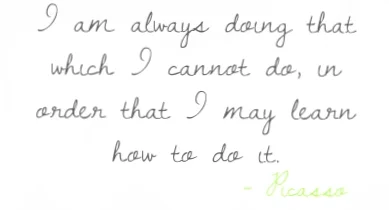 I am always doing that
which I cannot do, in
order that I may learn
how to do it.
- Picasso